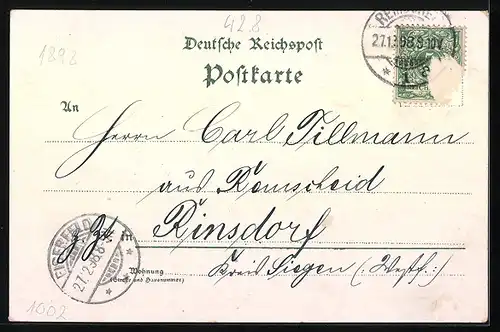 42.8
1898
Deutsche Reichspost
Postkarte
An
Herrn Carl Tillmann
aus Remscheid
z. Zt. in Rinsdorf
Wohnung
(Straße und Hausnummer)
Kreis Siegen (: Westf :)
REMSCHEID
EISERFELD
1002